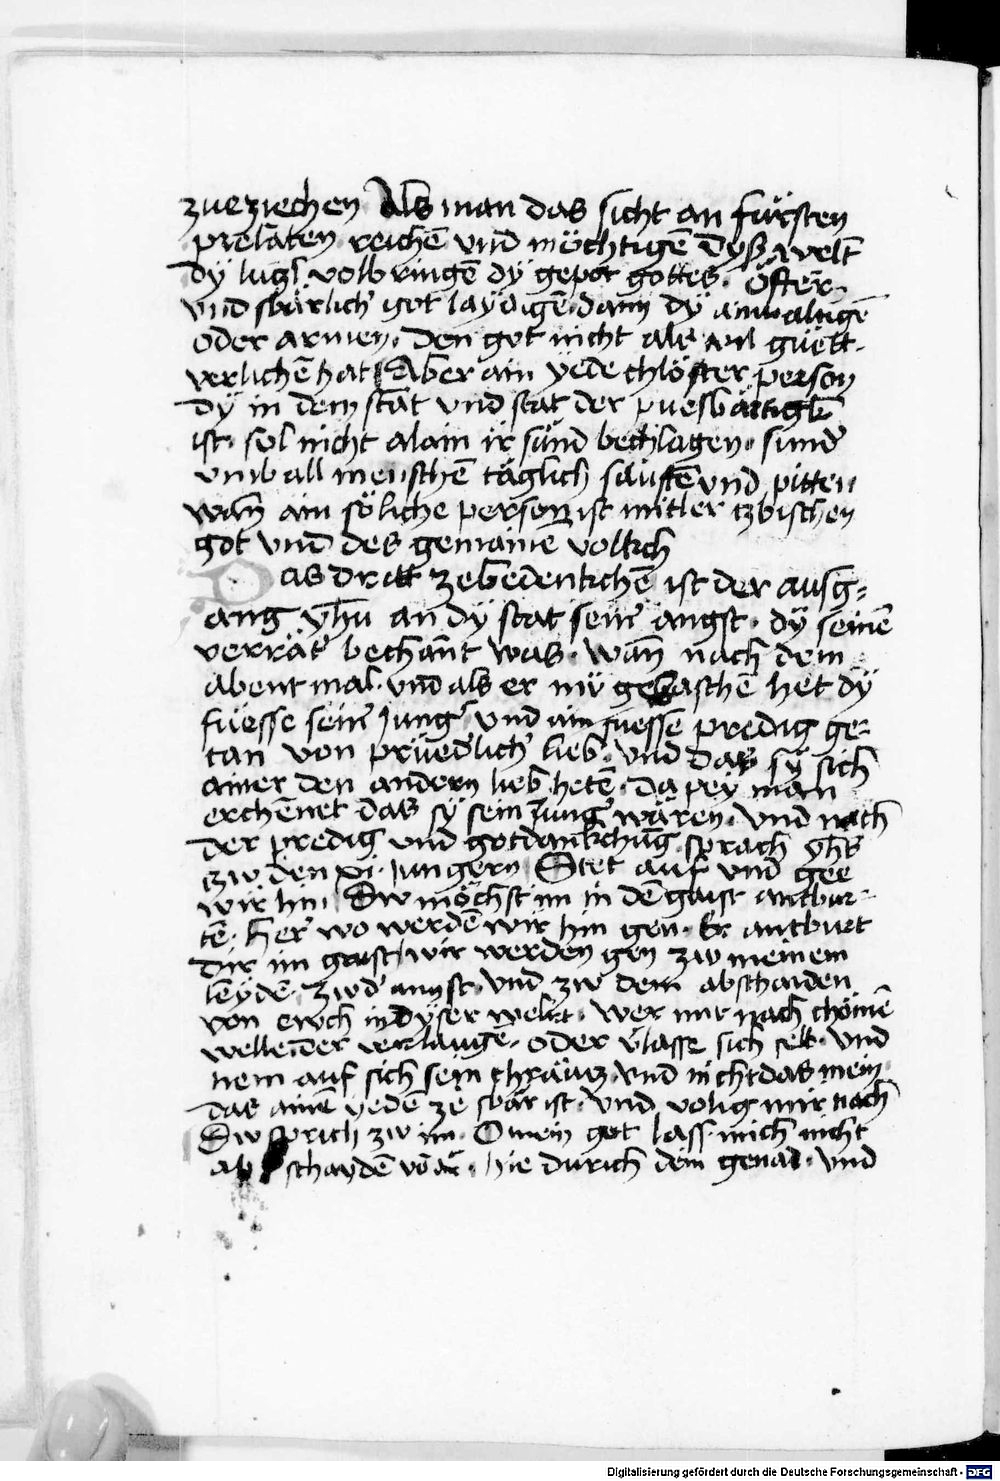 zueziechen Als man das sicht an fürsten
prelaten reichē vnd möchtigē dyß welt
dÿ lüzl volbringē dÿ gepot gottes. öfter
vnd sbärlich' got laÿdigē. dann dÿ ainualtigē
oder armen. den got nicht als vil güett-
verlichē hat Aber ain yede chlöster person
dÿ in dem stāt vnd stat der puesbärtigk̄
ist. sol nicht alain ir sünd bechlagen. sund'
vmb all menschē täglich säuftē vnd pitten
wān ain söliche person ist mitler zbischen
got vnd des gemaine volkch
Das dritt zebedenkchē ist der ausg=
ang yhū an dÿ stat sein' angst. dÿ seinē
verrät' bechānt was. wān nach dem
abent mal. vnd als er nv gebaschē het dÿ
füesse sein' Jung' vnd ain suesse predig ge-
tan von prüed'lich' lieb. vnd das sÿ sich
ainer den andern lieb hetē. da pey man
erchēnet das sÿ sein Jung' wären. vnd nach
der predig vnd gotdankchūg sprach yh̄s
zw den xi. Jungern Stet auf vnd gee
wir hin. Dw möchst im in dē gaist antbur-
tē. Her' wo werdē wir hin gen. Er antburt
dir im gaist wir werden gen zw meinem
leydē. zwd' angst. vnd zw dem abschaiden
von ewch in dyser welt. wer mir nach chömē
welle der verlaugē. oder v'lasse sich selb. vnd
nem auf sich sein chräutz. vnd nicht das mein
das ainē yedē ze sbär ist. vnd volig mir nach
Dw sprich zw im. O mein got lass mich nicht
ab schaydē vō dir. hie durich dein genad. vnd
Digitalisierung gefördert durch die Deutsche Forschungsgemeinschaft - DFG